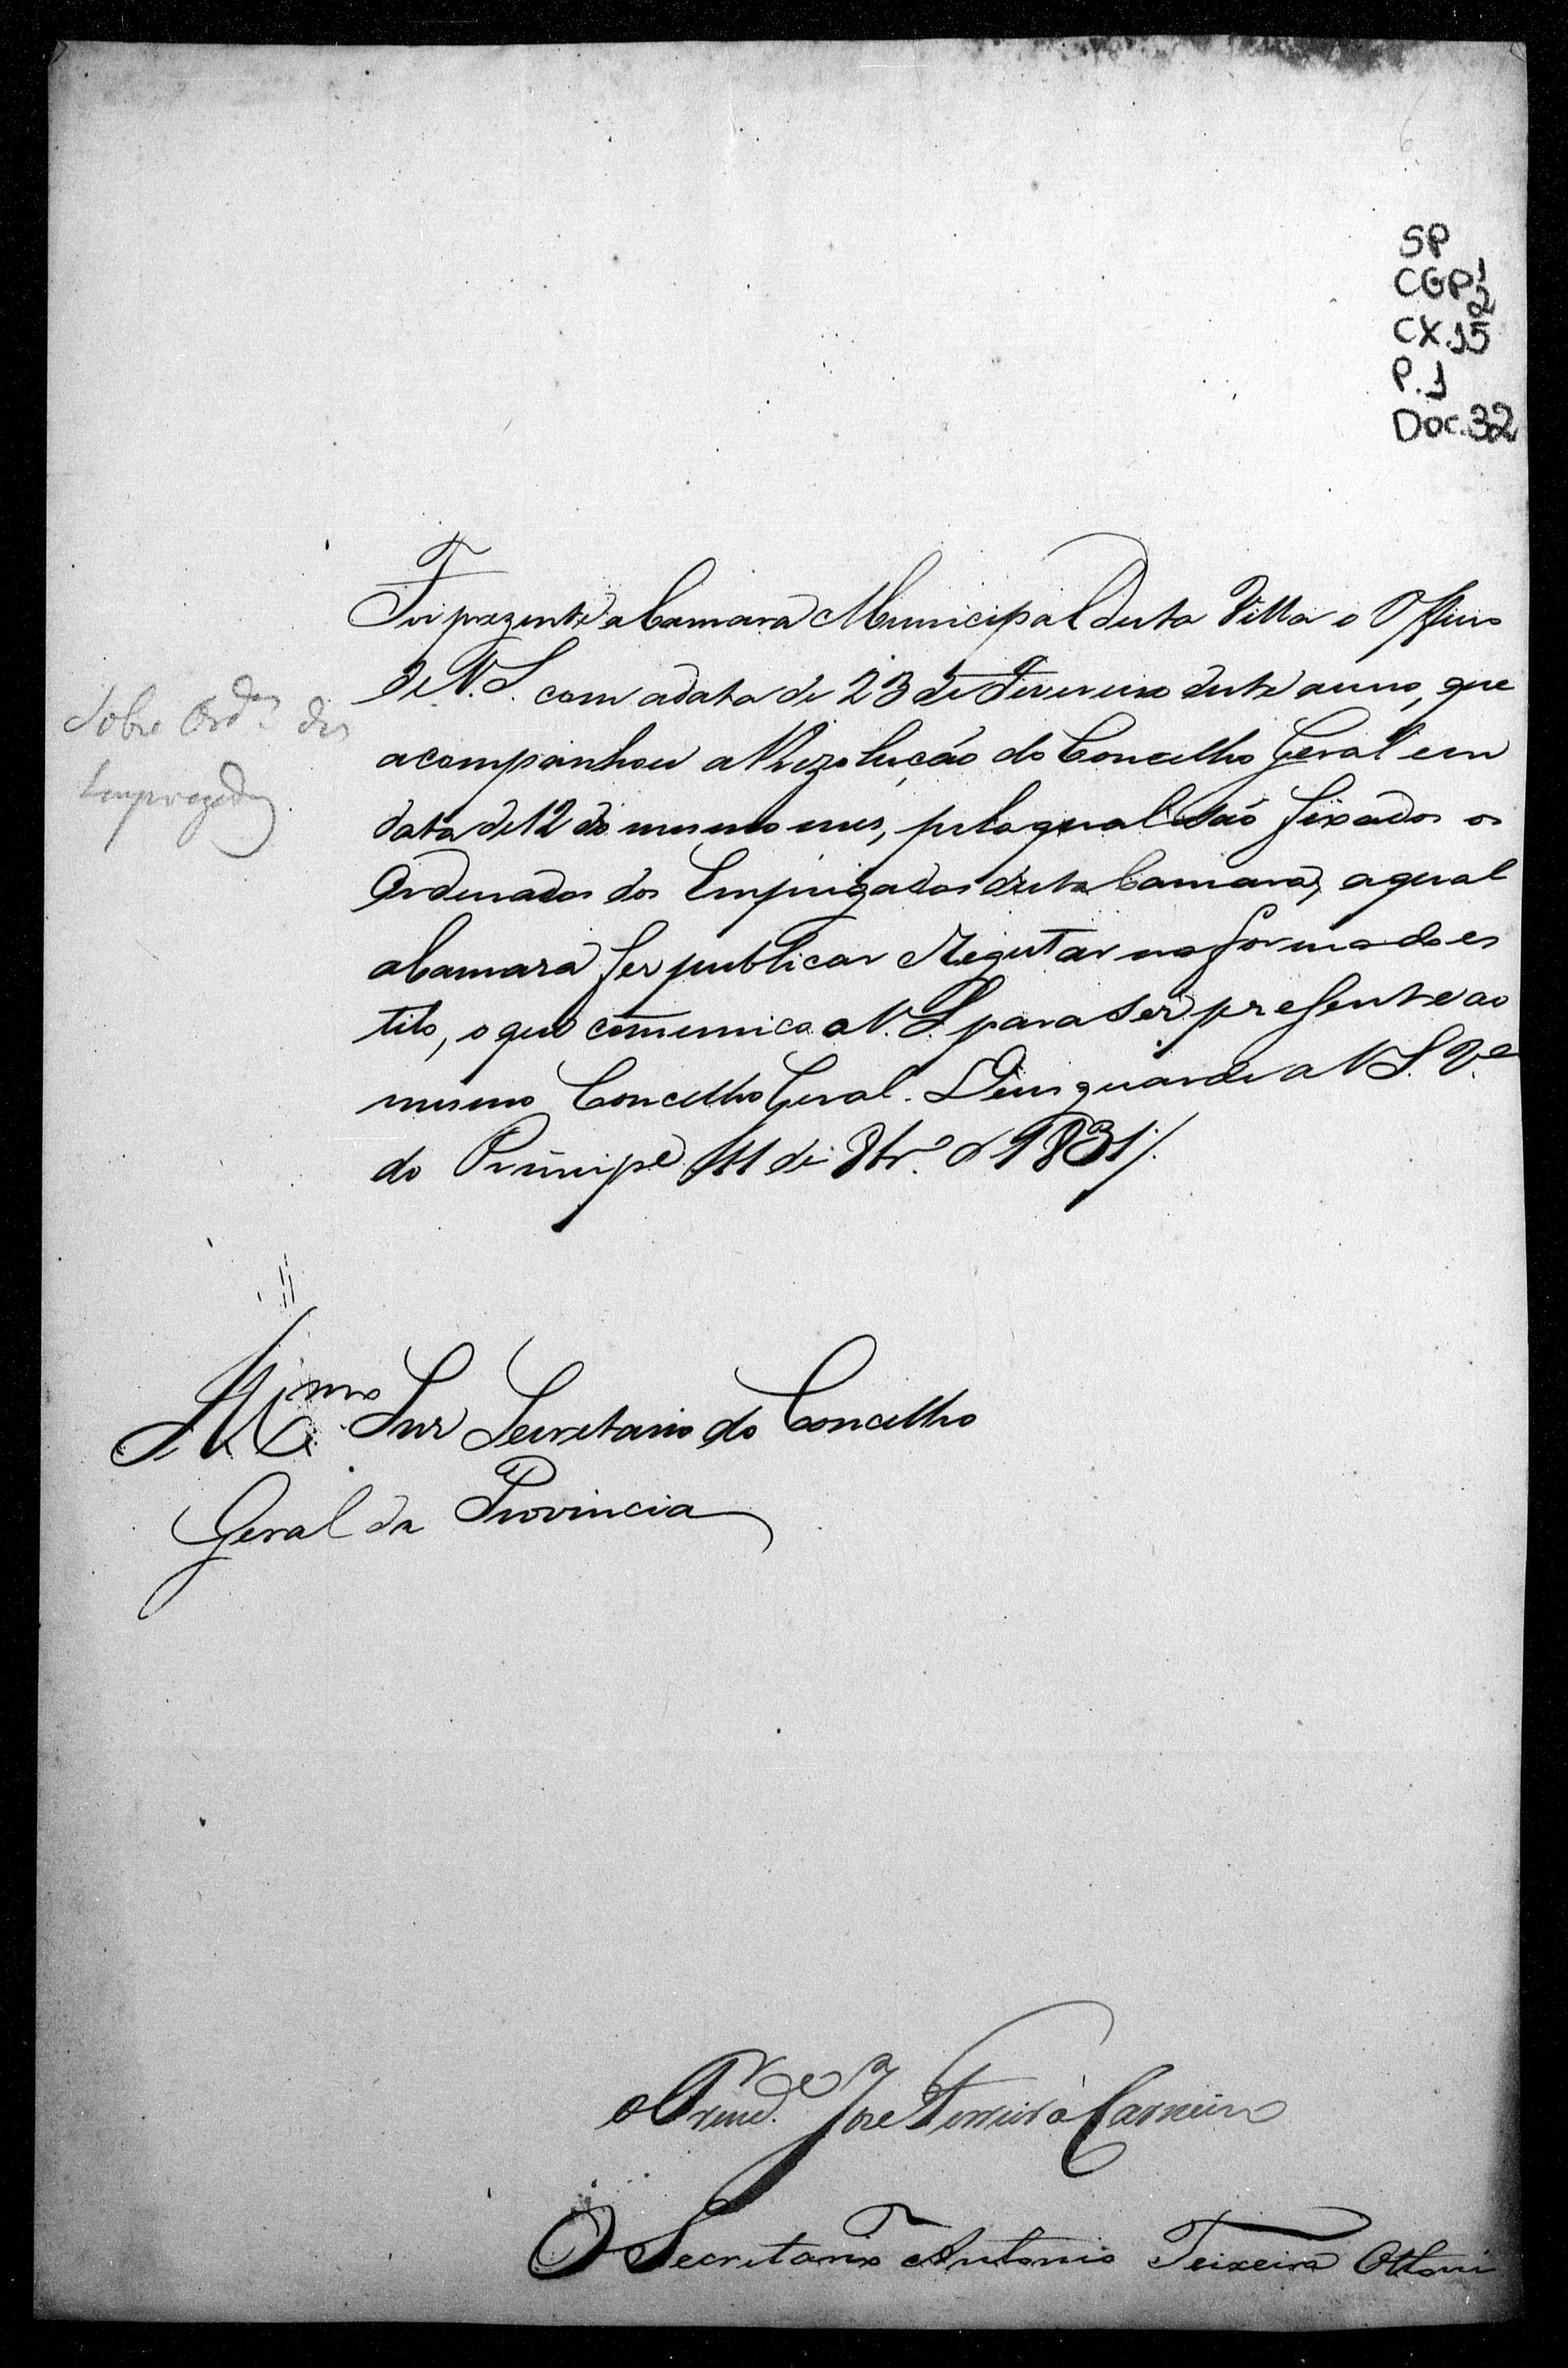 6
SP
CGP 1/2
CX.15
P.1
Doc.32
Foi prezente a Camara Municipal desta Villa o Officio
de V. S. com a data de 23 de Fevereiro deste anno, que
Sobre Ord.os dos
Empregados
acompanhou a Rezolução do Concelho Geral em
data de 12 do mesmo mes, pela qual são fixados os
Ordenados dos Empregados desta Camara, a qual
a Camara fes publicar e Registar na forma do es
tilo, o que comunica a V. S. para ser presente ao
mesmo Concelho Geral. Deus guarde a V S. V.a
do Principe 11 de 8br.o d 1831/.
Ill.mo Snr Secretario do Concelho
Geral da Provincia
o Prezid.e Jose Ferreira Carneiro
O Secretario Antonio Teixeira Ottoni